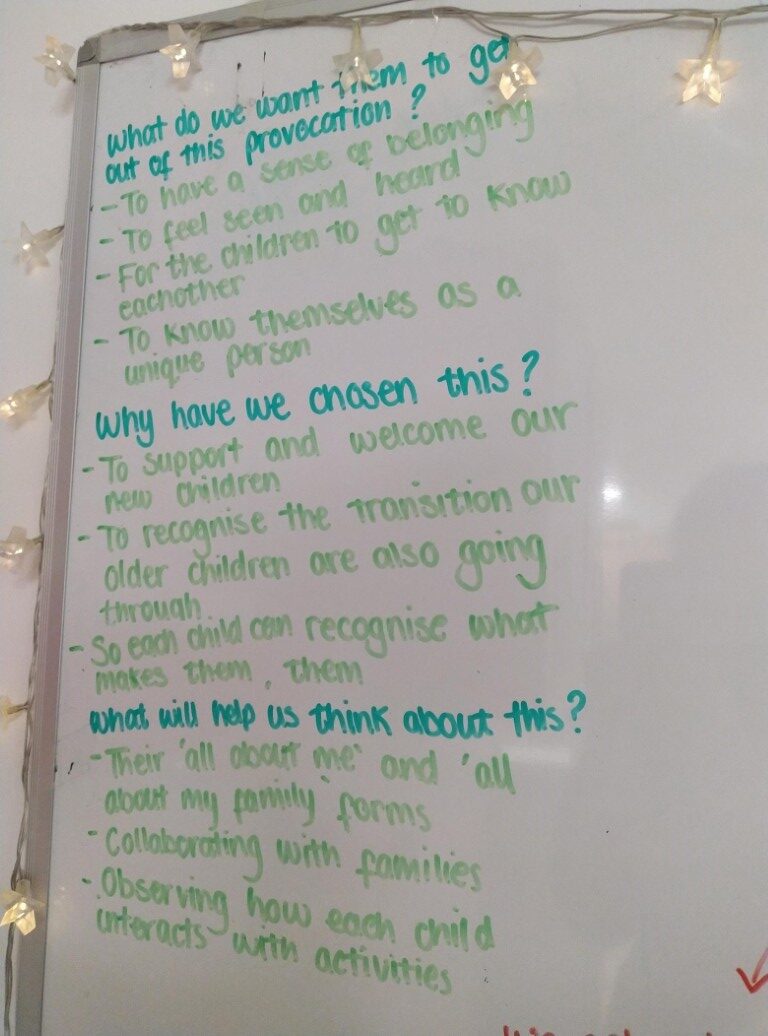 what do we want them to get
out of this provocation?
- To have a sense of belonging
- To feel seen and heard
- For the children to get to know
eachother
- To know themselves as a
unique person
why have we chosen this?
- To support and welcome our
new children
- To recognise the transition our
older children are also going
through.
- So each child can recognise what
makes them, them
what will help us think about this?
- Their 'all about me' and 'all
about my family' forms
- Collaborating with families
- Observing how each child
interacts with activities